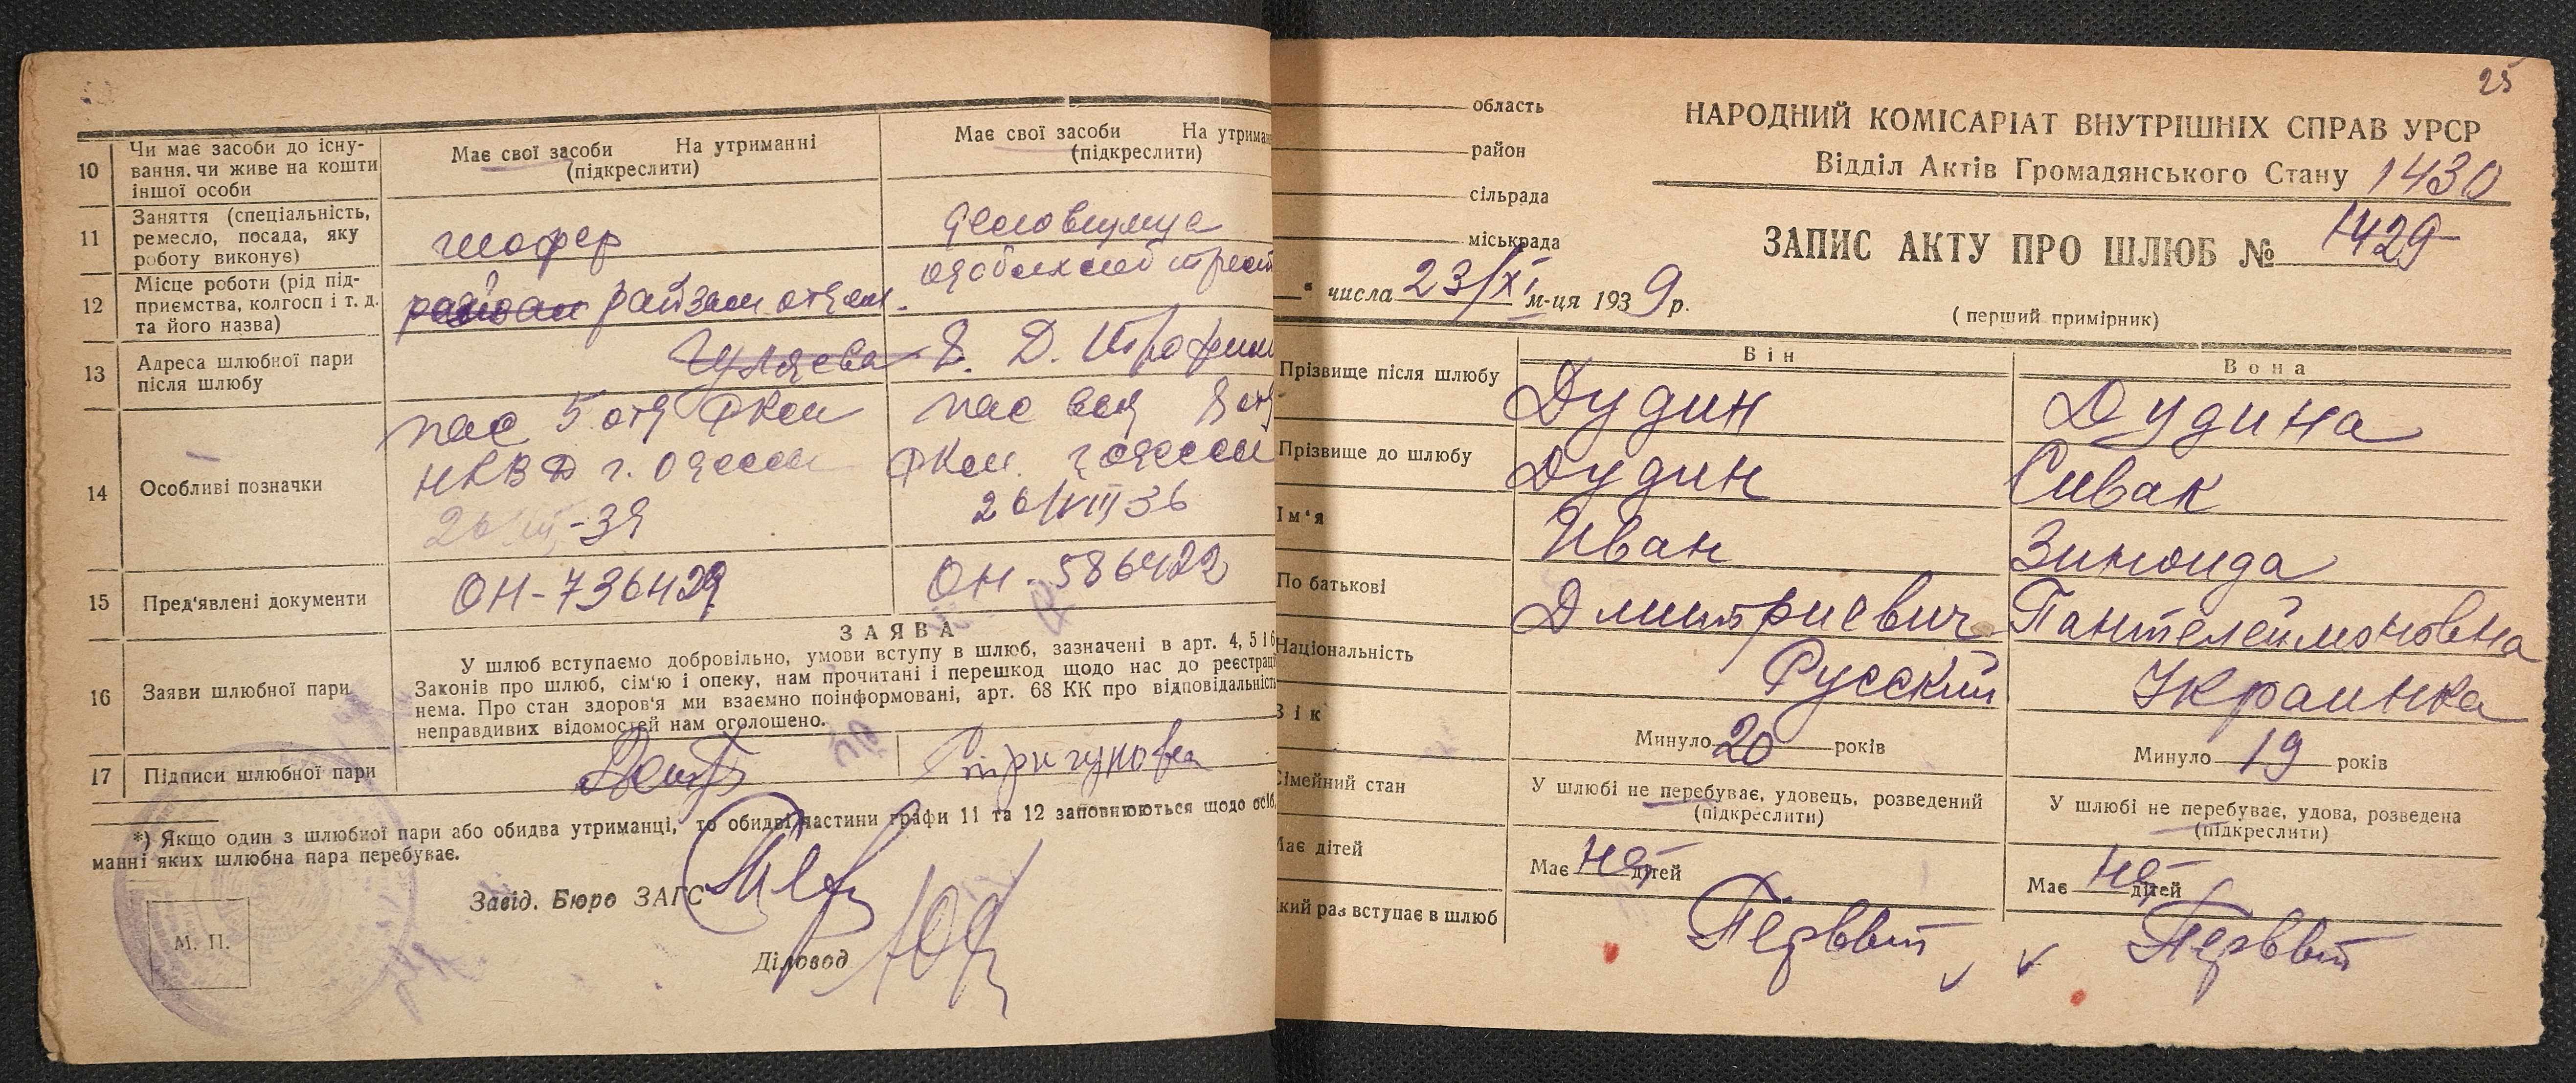 10
Чи має засоби до існу-
вання. чи живе на кошти
іншої особи
Має свої засоби На утриманні
(підкреслити)
Має свої засоби На утриман
(підкреслити)
11
Заняття (спеціальність,
ремесло, посада, яку
роботу виконує)
шофер
12
Місце роботи (рід під-
приємства, колгосп і т. д.
та його назва)
13
Адреса шлюбної пари
після шлюбу
14
Особливі позначки
пас 5 отд РКм
НКВД г. Одессы
пас выд 8 отд
РКм. г Одессы
26/VIII 36
15
Пред'явлені документи
ОН-736429
ОН-586422
16
Заяви шлюбної пари
ЗАЯВА
У шлюб вступаємо добровільно, умови вступу в шлюб, зазначені в арт. 4, 5 і 6
Законів про шлюб, сім'ю і опеку, нам прочитані і перешкод щодо нас до реєстрац
нема. Про стан здоров'я ми взаємно поінформовані, арт. 68 КК про відповідальніст
неправдивих відомостей нам оголошено.
17
Підписи шлюбної пари
*) Якщо один з шлюбної пари або обидва утриманці, то обидві частини графи 11 та 12 заповнюються щодо осіб,
манні яких шлюбна пара перебуває.
Завід. Бюро ЗАГС
Діловод
М. П.
25
область
район
сільрада
міськрада
НАРОДНИЙ КОМІСАРІАТ ВНУТРІШНІХ СПРАВ УРСР
Відділ Актів Громадянського Стану 1430
ЗАПИС АКТУ ПРО ШЛЮБ № 1429
" числа 23/XI м-ця 1939 р.
(перший примірник)
Він
Вона
Прізвище після шлюбу
Дудин
Дудина
Прізвище до шлюбу
Дудин
Сивак
Ім'я
Иван
Зиноида
По батькові
Дмитриевич
Пантелеймоновна
Національність
Русский
Украинка
Вік
Минуло 20 років
Минуло 19 років
Сімейний стан
У шлюбі не перебуває, удовець, розведений
(підкреслити)
У шлюбі не перебуває, удова, розведена
(підкреслити)
Має дітей
Має нет дітей
Має нет дітей
кий раз вступає в шлюб
Первый
Первый